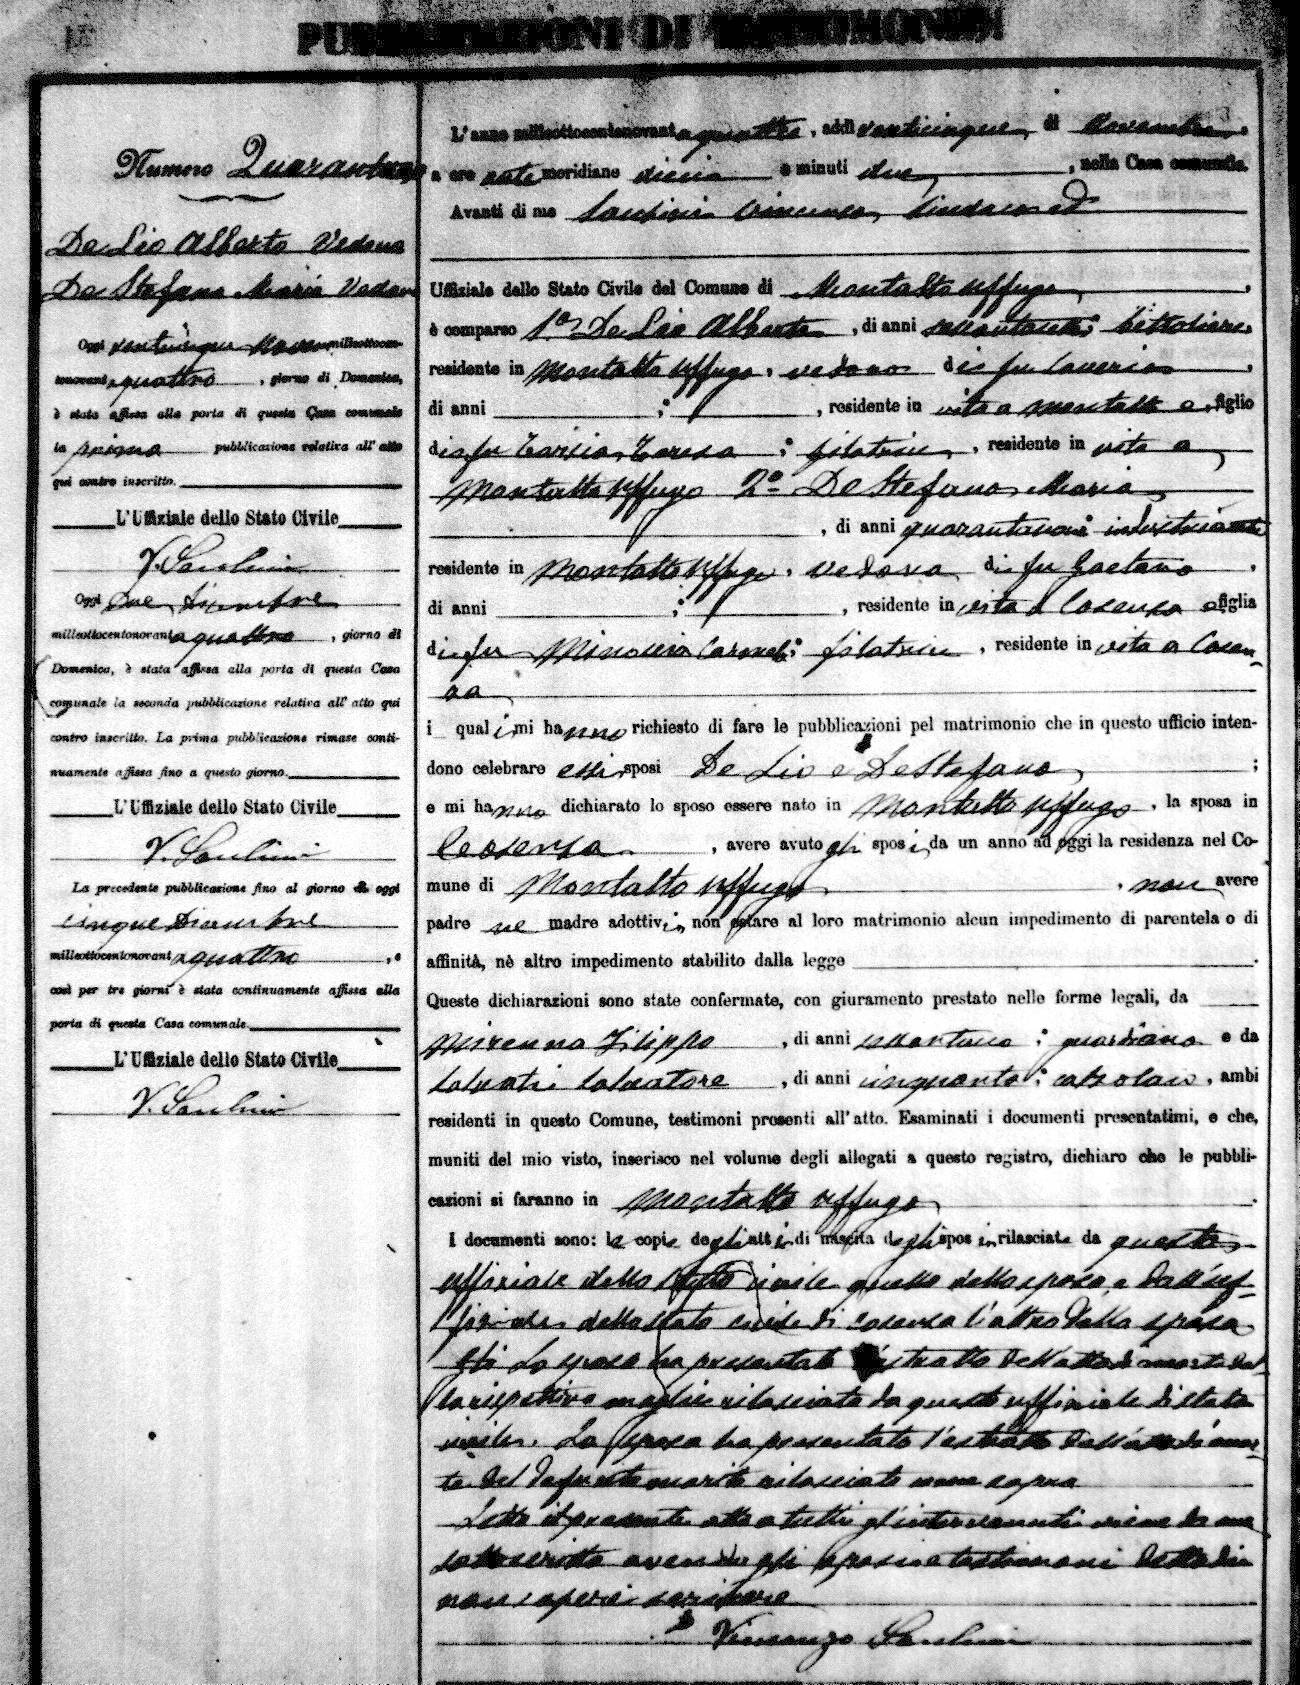 PUBBLICAZIONI DI MATRIMONIO
Numero
De Lio Alberto Vedovo
De Stefano Maria Vedova
Oggi venticinque Novembre milleottocen-
tonovantaquattro, giorno di Domenica,
è stata affissa alla porta di questa Casa comunale
la prima pubblicazione relativa all'atto
qui contro inscritto.
L'Uffiziale dello Stato Civile
Oggi due Dicembre
milleottocentonovantaquattro, giorno di
Domenica, è stata affissa alla porta di questa Casa
comunale la seconda pubblicazione relativa all'atto qui
contro inscritto. La prima pubblicazione rimase conti-
nuamente affissa fino a questo giorno.
L'Uffiziale dello Stato Civile
La precedente pubblicazione fino al giorno di oggi
cinque Dicembre
milleottocentonovantaquattro, e
così per tre giorni è stata continuamente affissa alla
porta di questa Casa comunale.
L'Uffiziale dello Stato Civile
L'anno milleottocentonovantaquattro, addì venticinque di Novembre,
a ore ante meridiane dieci e minuti due, nella Casa comunale.
Avanti di me Vincenzo Sindaco ed
Uffiziale dello Stato Civile del Comune di Montalto Uffugo,
è comparso 1° De Lio Alberto, di anni
residente in Montalto Uffugo, vedovo di fu Saverio,
di anni ; , residente in vita a Montalto e, figlio
di fu Teresa; filatrice, residente in vita a
Montalto Uffugo 2° De Stefano Maria
, di anni industriante
residente in Montalto Uffugo, vedova di fu Gaetano,
di anni ; , residente in vita a Cosenza e figlia
di fu ; filatrice, residente in vita a Cosen-
za
i quali mi hanno richiesto di fare le pubblicazioni pel matrimonio che in questo ufficio inten-
dono celebrare essi sposi De Lio e De Stefano;
e mi hanno dichiarato lo sposo essere nato in Montalto Uffugo, la sposa in
Cosenza, avere avuto gli sposi da un anno ad oggi la residenza nel Co-
mune di Montalto Uffugo, non avere
padre nè madre adottivi, non ostare al loro matrimonio alcun impedimento di parentela o di
affinità, nè altro impedimento stabilito dalla legge.
Queste dichiarazioni sono state confermate, con giuramento prestato nelle forme legali, da
Filippo, di anni ; guardiano e da
Salvatore, di anni cinquanta; calzolaio, ambi
residenti in questo Comune, testimoni presenti all'atto. Esaminati i documenti presentatimi, e che,
muniti del mio visto, inserisco nel volume degli allegati a questo registro, dichiaro che le pubbli-
cazioni si faranno in Montalto Uffugo.
I documenti sono: le copie degli atti di nascita degli sposi rilasciate da questo
uffiziale dello stato civile quello dello sposo, e dall'uf-
fiziale dello stato civile di Cosenza l'altro della sposa
Lo sposo ha presentato l'estratto dell'atto di morte del
la rispettiva moglie rilasciato da questo uffiziale di stato
civile. La sposa ha presentato l'estratto dell'atto di mor-
te del defunto marito rilasciato come sopra
Letto il presente atto a tutti gl'intervenuti viene da me
sottoscritto avendo gli sposi e testimoni detto di
non sapere scrivere
Vincenzo